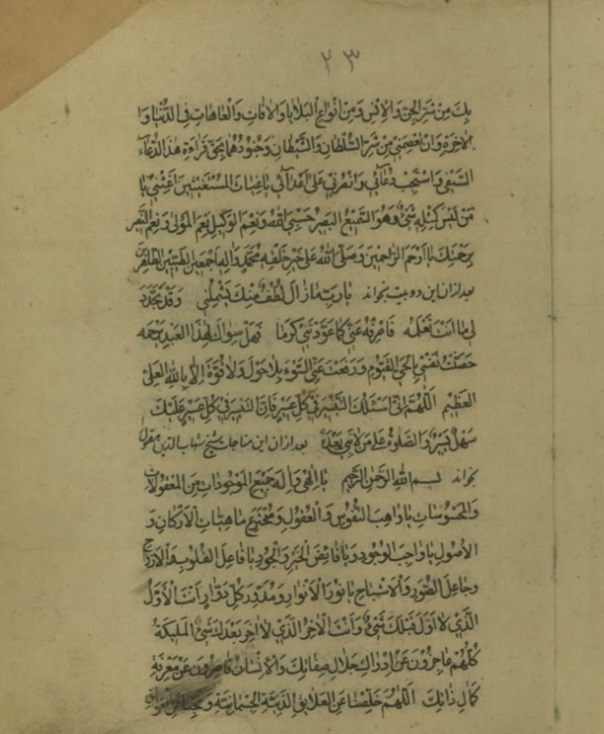 ٢٣
بِكَ مِنْ شَرِّ الْجِنِّ وَالْاِنْسِ وَمِنْ اَنْوَاعِ الْبَلَايَا وَالْاٰفَاتِ وَالْعَاهَاتِ فِي الدُّنْيَا وَا
لْاٰخِرَةِ وَاَنْ تَعْصِمَنِي مِنْ شَرِّ السُّلْطَانِ وَالشَّيْطَانِ وَجُنُودِهِمَا بِحَقِّ قِرَاءَةِ هٰذَا الدُّعَاءِ
السَّيْفِي وَاسْتَجِبْ دُعَائِي وَانْصُرْنِي عَلٰى اَعْدَائِي يَا غِيَاثَ الْمُسْتَغِيثِينَ اَغِثْنِي يَا
مَنْ لَيْسَ كَمِثْلِهِ شَيْءٌ وَهُوَ السَّمِيعُ الْبَصِيرُ حَسْبِيَ اللّٰهُ وَنِعْمَ الْوَكِيلُ نِعْمَ الْمَوْلٰى وَنِعْمَ النَّصِيرُ
بِرَحْمَتِكَ يَا اَرْحَمَ الرَّاحِمِينَ وَصَلَّى اللّٰهُ عَلٰى خَيْرِ خَلْقِهِ مُحَمَّدٍ وَاٰلِهِ اَجْمَعِينَ الطَّيِّبِينَ الطَّاهِرِينَ
بعد ازان این دو بیت بخواند يَا رَبِّ مَا زَالَ لُطْفٌ مِنْكَ يَشْمِلُنِي وَقَدْ تَجَدَّدَ
لِي مَا اَنْتَ تَعْلَمُهُ فَاصْرِفْهُ عَنِّي كَمَا عَوَّدْتَنِي كَرَمًا فَمَنْ سِوَاكَ لِهٰذَا الْعَبْدِ يَرْحَمُهُ
حَصَّنْتُ نَفْسِي بِالْحَيِّ الْقَيُّومِ وَدَفَعْتُ عَنِّي السُّوءَ بِلَا حَوْلَ وَلَا قُوَّةَ اِلَّا بِاللّٰهِ الْعَلِيِّ
الْعَظِيمِ اَللّٰهُمَّ اِنِّي اَسْئَلُكَ التَّيْسِيرَ فِي كُلِّ عَسِيرٍ فَاِنَّ التَّيْسِيرَ فِي كُلِّ عَسِيرٍ عَلَيْكَ
سَهْلٌ يَسِيرٌ وَالصَّلٰوةُ عَلٰى مَنْ لَا نَبِيَّ بَعْدَهُ بعد ازان این مناجات شیخ شهاب الدین مقتول
بخواند بِسْمِ اللّٰهِ الرَّحْمٰنِ الرَّحِيمِ يَا اِلٰهِي وَاِلٰهَ جَمِيعِ الْمَوْجُودَاتِ مِنَ الْمَعْقُولَاتِ
وَالْمَحْسُوسَاتِ يَا وَاهِبَ النُّفُوسِ وَالْعُقُولِ وَمُخْتَرِعَ مَاهِيَّاتِ الْاَرْكَانِ وَ
الْاُصُولِ يَا وَاجِبَ الْوُجُودِ وَيَا فَائِضَ الْخَيْرِ وَالْجُودِ يَا فَاعِلَ الْقُلُوبِ وَالْاَرْوَاحِ
وَجَاعِلَ الصُّوَرِ وَالْاَشْبَاحِ يَا نُورَ الْاَنْوَارِ وَمُدَوِّرَ كُلِّ دَوَّارٍ اَنْتَ الْاَوَّلُ
الَّذِي لَا اَوَّلَ قَبْلَكَ شَيْءٌ وَاَنْتَ الْاٰخِرُ الَّذِي لَا اٰخِرَ بَعْدَكَ شَيْءٌ الْمَلٰئِكَةُ
كُلُّهُمْ عَاجِزُونَ عَنْ اِدْرَاكِ جَلَالِ صِفَاتِكَ وَالْاِنْسَانُ قَاصِرُونَ عَنْ مَعْرِفَةِ
كَمَالِ ذَاتِكَ اَللّٰهُمَّ خَلِّصْنَا عَنِ الْعَلَائِقِ الدَّنِيَّةِ الْجِسْمَانِيَّةِ وَنَجِّنَا عَنْ